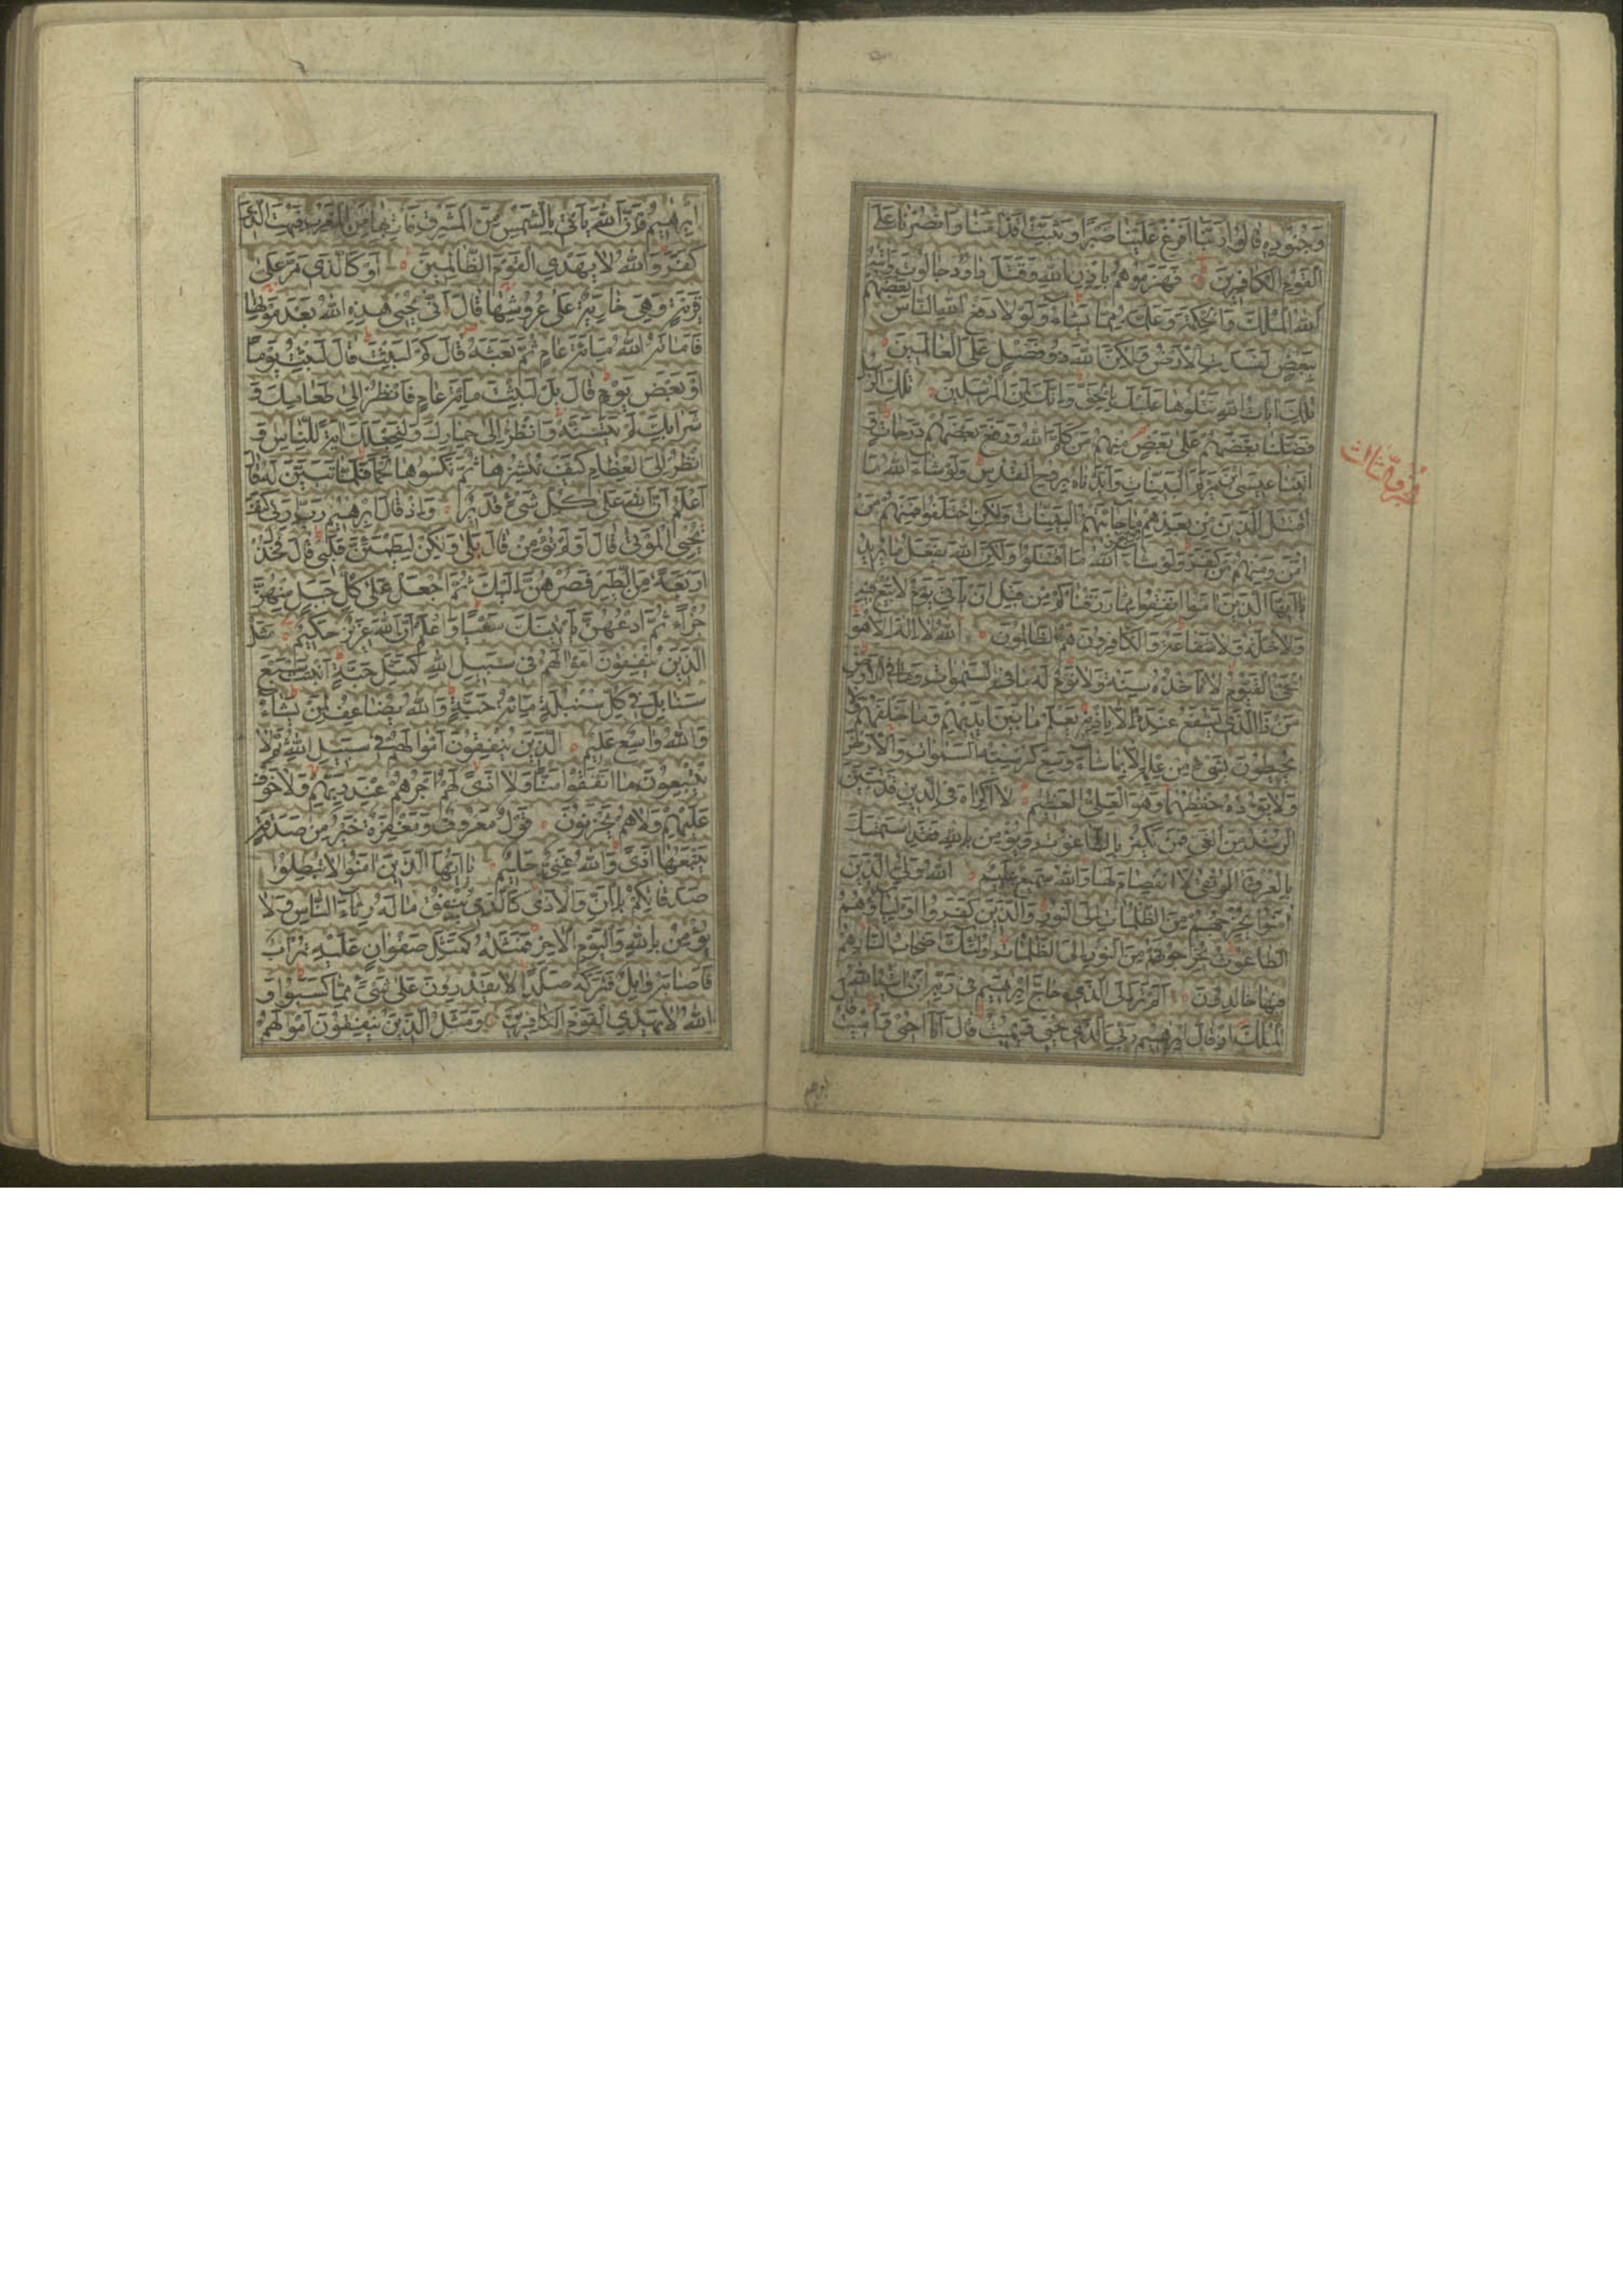 وَجُنُودِهِ قَالُوا رَبَّنَا أَفْرِغْ عَلَيْنَا صَبْرًا وَثَبِّتْ أَقْدَامَنَا وَانْصُرْنَا عَلَى
الْقَوْمِ الْكَافِرِينَ فَهَزَمُوهُمْ بِإِذْنِ اللَّهِ وَقَتَلَ دَاوُدُ جَالُوتَ وَآتَيهُ
اللَّهُ الْمُلْكَ وَالْحِكْمَةَ وَعَلَّمَهُ مِمَّا يَشَاءُ وَلَوْلَا دَفْعُ اللَّهِ النَّاسَ بَعْضَهُمْ
بِبَعْضٍ لَفَسَدَتِ الْأَرْضُ وَلَكِنَّ اللَّهَ ذُو فَضْلٍ عَلَى الْعَالَمِينَ
تِلْكَ آيَاتُ اللَّهِ نَتْلُوهَا عَلَيْكَ بِالْحَقِّ وَإِنَّكَ لَمِنَ الْمُرْسَلِينَ تِلْكَ الرُّسُلُ
فَضَّلْنَا بَعْضَهُمْ عَلَى بَعْضٍ مِنْهُمْ مَنْ كَلَّمَ اللَّهُ وَرَفَعَ بَعْضَهُمْ دَرَجَاتٍ وَ
آتَيْنَا عِيسَى بْنَ مَرْيَمَ الْبَيِّنَاتِ وَأَيَّدْنَاهُ بِرُوحِ الْقُدُسِ وَلَوْ شَاءَ اللَّهُ مَا
اقْتَتَلَ الَّذِينَ مِنْ بَعْدِهِمْ مِنْ بَعْدِ مَا جَاءَتْهُمُ الْبَيِّنَاتُ وَلَكِنِ اخْتَلَفُوا فَمِنْهُمْ مَنْ
آمَنَ وَمِنْهُمْ مَنْ كَفَرَ وَلَوْ شَاءَ اللَّهُ مَا اقْتَتَلُوا وَلَكِنَّ اللَّهَ يَفْعَلُ مَا يُرِيدُ
يَا أَيُّهَا الَّذِينَ آمَنُوا أَنْفِقُوا مِمَّا رَزَقْنَاكُمْ مِنْ قَبْلِ أَنْ يَأْتِيَ يَوْمٌ لَا بَيْعٌ فِيهِ
وَلَا خُلَّةٌ وَلَا شَفَاعَةٌ وَالْكَافِرُونَ هُمُ الظَّالِمُونَ اللَّهُ لَا إِلَهَ إِلَّا هُوَ
الْحَيُّ الْقَيُّومُ لَا تَأْخُذُهُ سِنَةٌ وَلَا نَوْمٌ لَهُ مَا فِي السَّمَوَاتِ وَمَا فِي الْأَرْضِ
مَنْ ذَا الَّذِي يَشْفَعُ عِنْدَهُ إِلَّا بِإِذْنِهِ يَعْلَمُ مَا بَيْنَ أَيْدِيهِمْ وَمَا خَلْفَهُمْ وَلَا
يُحِيطُونَ بِشَيْءٍ مِنْ عِلْمِهِ إِلَّا بِمَا شَاءَ وَسِعَ كُرْسِيُّهُ السَّمَوَاتِ وَالْأَرْضَ
وَلَا يَؤُدُهُ حِفْظُهُمَا وَهُوَ الْعَلِيُّ الْعَظِيمُ لَا إِكْرَاهَ فِي الدِّينِ قَدْ تَبَيَّنَ
الرُّشْدُ مِنَ الْغَيِّ فَمَنْ يَكْفُرْ بِالطَّاغُوتِ وَيُؤْمِنْ بِاللَّهِ فَقَدِ اسْتَمْسَكَ
بِالْعُرْوَةِ الْوُثْقَى لَا انْفِصَامَ لَهَا وَاللَّهُ سَمِيعٌ عَلِيمٌ اللَّهُ وَلِيُّ الَّذِينَ
آمَنُوا يُخْرِجُهُمْ مِنَ الظُّلُمَاتِ إِلَى النُّورِ وَالَّذِينَ كَفَرُوا أَوْلِيَاؤُهُمُ
الطَّاغُوتُ يُخْرِجُونَهُمْ مِنَ النُّورِ إِلَى الظُّلُمَاتِ أُولَئِكَ أَصْحَابُ النَّارِ هُمْ
فِيهَا خَالِدُونَ أَلَمْ تَرَ إِلَى الَّذِي حَاجَّ إِبْرَهِيمَ فِي رَبِّهِ أَنْ آتَيهُ اللَّهُ
الْمُلْكَ إِذْ قَالَ إِبْرَهِيمُ رَبِّيَ الَّذِي يُحْيِي وَيُمِيتُ قَالَ أَنَا أُحْيِي وَأُمِيتُ قَالَ
إِبْرَهِيمُ فَإِنَّ اللَّهَ يَأْتِي بِالشَّمْسِ مِنَ الْمَشْرِقِ فَأْتِ بِهَا مِنَ الْمَغْرِبِ فَبُهِتَ الَّذِي
كَفَرَ وَاللَّهُ لَا يَهْدِي الْقَوْمَ الظَّالِمِينَ أَوْ كَالَّذِي مَرَّ عَلَى
قَرْيَةٍ وَهِيَ خَاوِيَةٌ عَلَى عُرُوشِهَا قَالَ أَنَّى يُحْيِي هَذِهِ اللَّهُ بَعْدَ مَوْتِهَا
فَأَمَاتَهُ اللَّهُ مِائَةَ عَامٍ ثُمَّ بَعَثَهُ قَالَ كَمْ لَبِثْتَ قَالَ لَبِثْتُ يَوْمًا
أَوْ بَعْضَ يَوْمٍ قَالَ بَلْ لَبِثْتَ مِائَةَ عَامٍ فَانْظُرْ إِلَى طَعَامِكَ وَ
شَرَابِكَ لَمْ يَتَسَنَّهْ وَانْظُرْ إِلَى حِمَارِكَ وَلِنَجْعَلَكَ آيَةً لِلنَّاسِ وَ
انْظُرْ إِلَى الْعِظَامِ كَيْفَ نُنْشِزُهَا ثُمَّ نَكْسُوهَا لَحْمًا فَلَمَّا تَبَيَّنَ لَهُ قَالَ
أَعْلَمُ أَنَّ اللَّهَ عَلَى كُلِّ شَيْءٍ قَدِيرٌ وَإِذْ قَالَ إِبْرَهِيمُ رَبِّ أَرِنِي كَيْفَ
تُحْيِي الْمَوْتَى قَالَ أَوَلَمْ تُؤْمِنْ قَالَ بَلَى وَلَكِنْ لِيَطْمَئِنَّ قَلْبِي قَالَ فَخُذْ
أَرْبَعَةً مِنَ الطَّيْرِ فَصُرْهُنَّ إِلَيْكَ ثُمَّ اجْعَلْ عَلَى كُلِّ جَبَلٍ مِنْهُنَّ
جُزْءًا ثُمَّ ادْعُهُنَّ يَأْتِينَكَ سَعْيًا وَاعْلَمْ أَنَّ اللَّهَ عَزِيزٌ حَكِيمٌ مَثَلُ
الَّذِينَ يُنْفِقُونَ أَمْوَالَهُمْ فِي سَبِيلِ اللَّهِ كَمَثَلِ حَبَّةٍ أَنْبَتَتْ سَبْعَ
سَنَابِلَ فِي كُلِّ سُنْبُلَةٍ مِائَةُ حَبَّةٍ وَاللَّهُ يُضَاعِفُ لِمَنْ يَشَاءُ
وَاللَّهُ وَاسِعٌ عَلِيمٌ الَّذِينَ يُنْفِقُونَ أَمْوَالَهُمْ فِي سَبِيلِ اللَّهِ ثُمَّ لَا
يُتْبِعُونَ مَا أَنْفَقُوا مَنًّا وَلَا أَذًى لَهُمْ أَجْرُهُمْ عِنْدَ رَبِّهِمْ وَلَا خَوْفٌ
عَلَيْهِمْ وَلَا هُمْ يَحْزَنُونَ قَوْلٌ مَعْرُوفٌ وَمَغْفِرَةٌ خَيْرٌ مِنْ صَدَقَةٍ
يَتْبَعُهَا أَذًى وَاللَّهُ غَنِيٌّ حَلِيمٌ يَا أَيُّهَا الَّذِينَ آمَنُوا لَا تُبْطِلُوا
صَدَقَاتِكُمْ بِالْمَنِّ وَالْأَذَى كَالَّذِي يُنْفِقُ مَالَهُ رِئَاءَ النَّاسِ وَلَا
يُؤْمِنُ بِاللَّهِ وَالْيَوْمِ الْآخِرِ فَمَثَلُهُ كَمَثَلِ صَفْوَانٍ عَلَيْهِ تُرَابٌ
فَأَصَابَهُ وَابِلٌ فَتَرَكَهُ صَلْدًا لَا يَقْدِرُونَ عَلَى شَيْءٍ مِمَّا كَسَبُوا وَ
اللَّهُ لَا يَهْدِي الْقَوْمَ الْكَافِرِينَ وَمَثَلُ الَّذِينَ يُنْفِقُونَ أَمْوَالَهُمُ